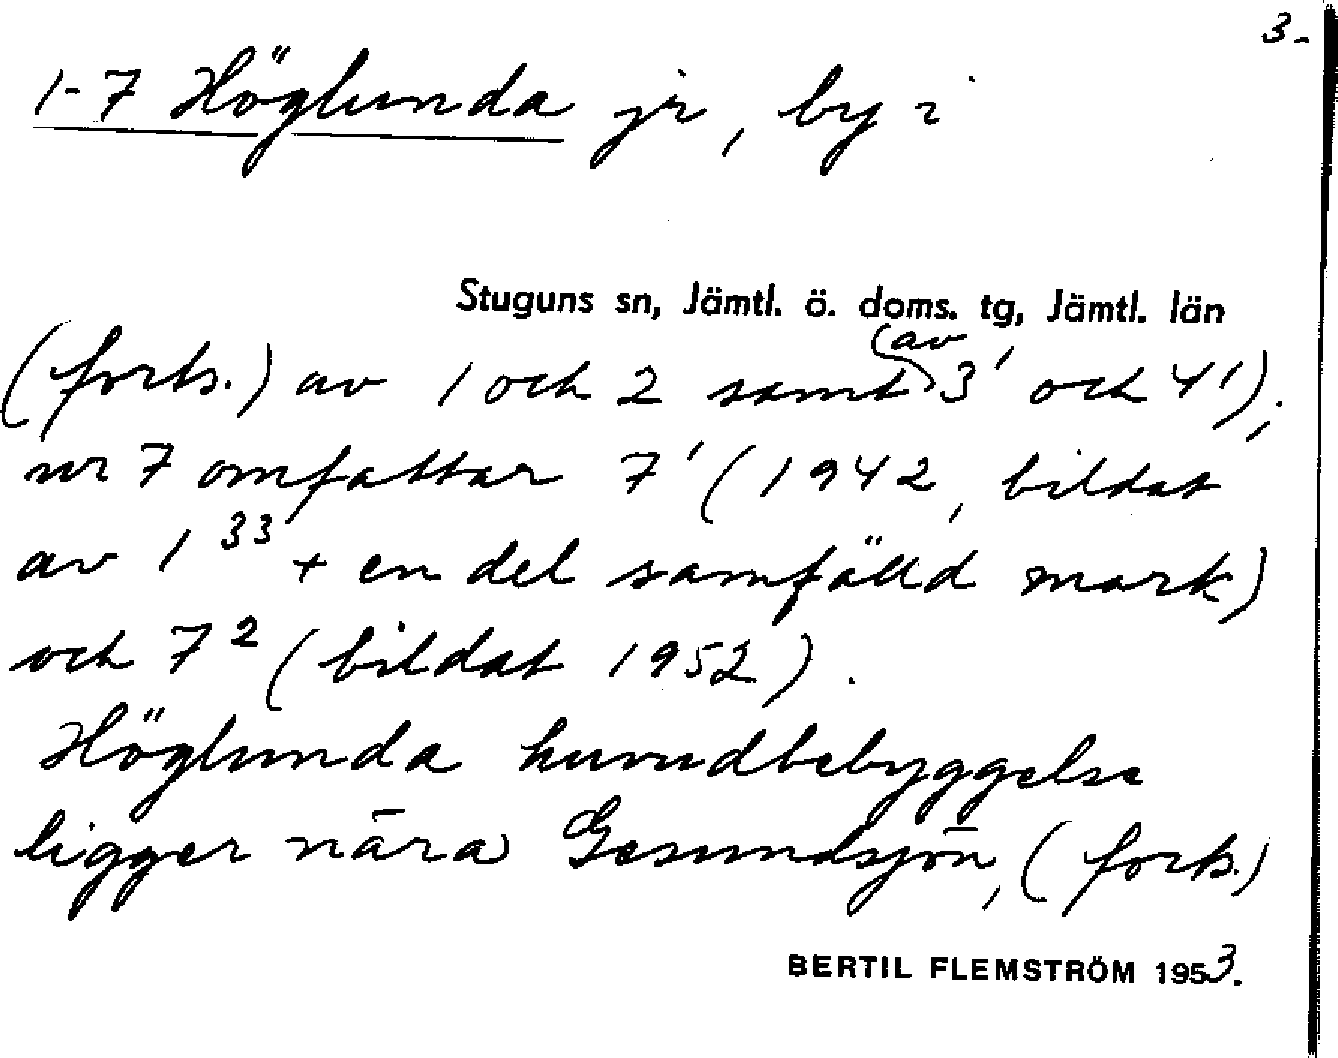 3-
1-7 Höglunda jr, by i
Stuguns sn, Jämtl. ö. doms. tg, Jämtl. län
(forts.) av 1 och 2 samt (av) 3¹ och 4¹);
nr 7 omfattar 7¹ (1942, bildat
av 1³³ + en del samfälld mark)
och 7² (bildat 1952).
Höglunda huvudbebyggelse
ligger nära Gesundsjön, (forts.)
BERTIL FLEMSTRÖM 1953.